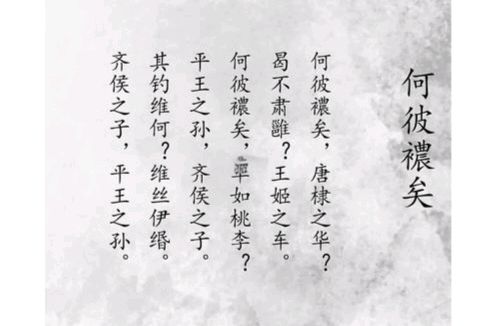 何彼襛矣
何彼襛矣，唐棣之华？
曷不肃雝？王姬之车。
何彼襛矣，如桃李？
平王之孙，齐侯之子。
其钓维何？维丝伊缗。
齐侯之子，平王之孙。